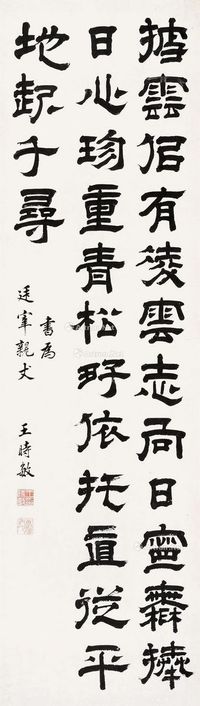 披雲佀有淩雲志向日寧無捧
日心珍重青松好依托直從平
地起千尋
書為
廷宰親丈
王時敏